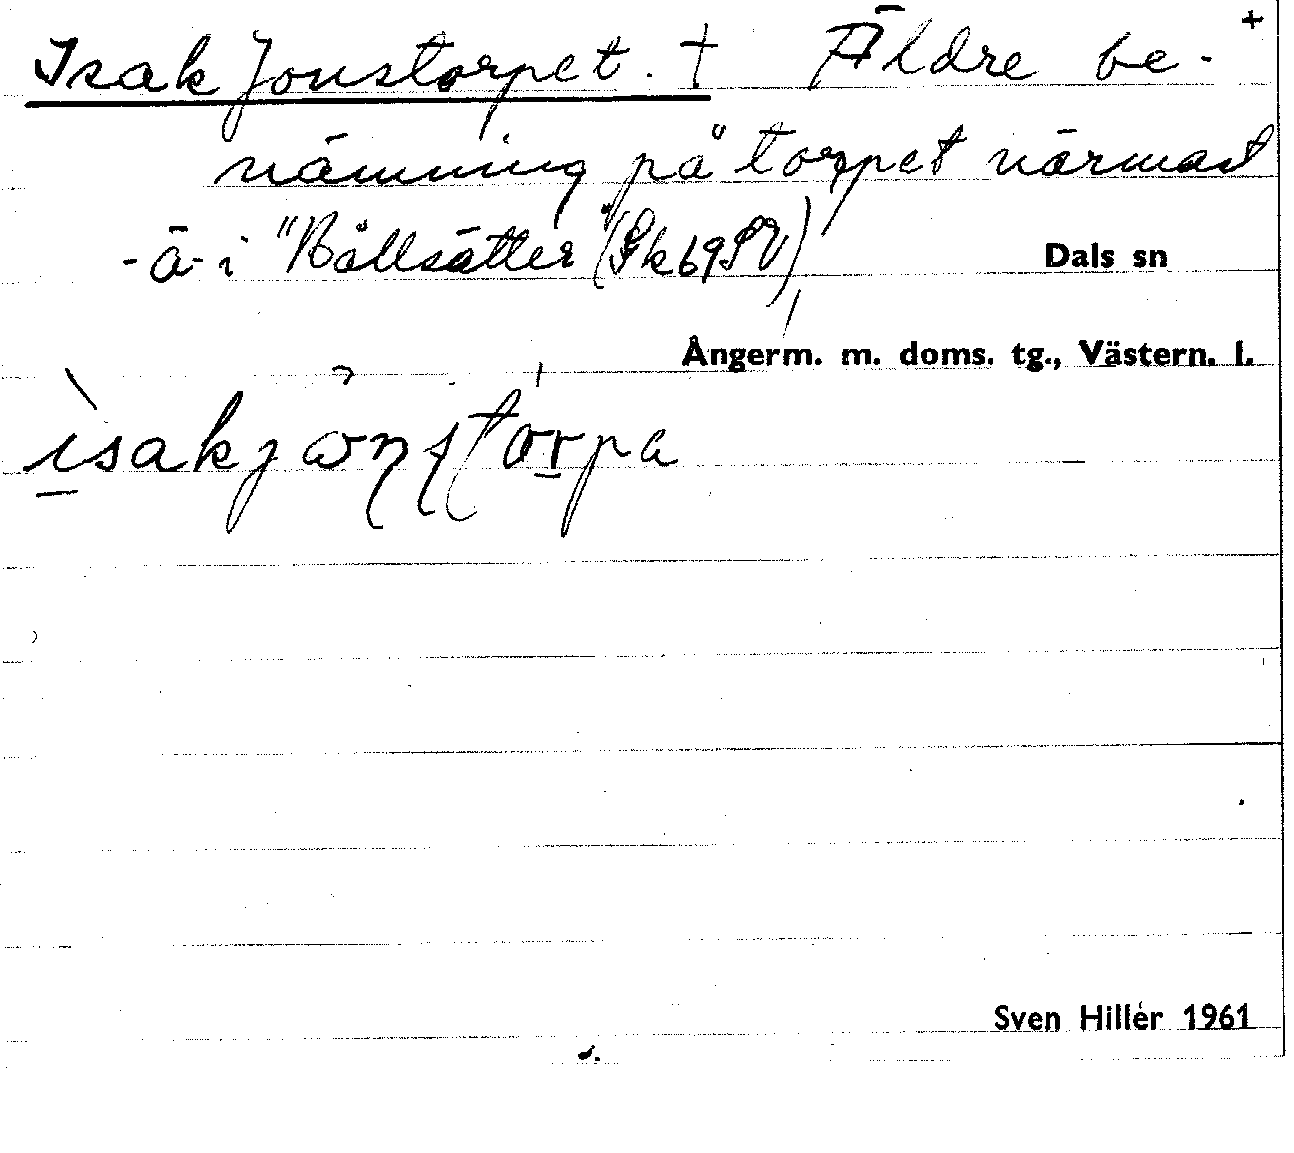 Isak Jonstorpet. † Äldre be- +
nämning på torpet närmast
-ä- i "Bållsätter" (Gk 69SV)
Dals sn
Ångerm. m. doms. tg., Västern. l.
ìsakjònstórpa
Sven Hillér 1961